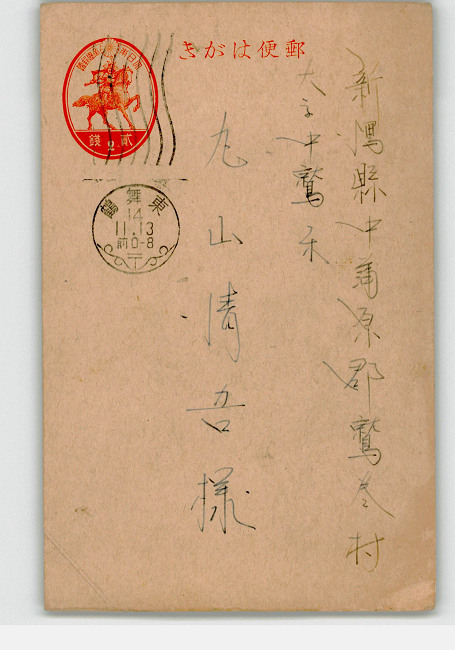 郵便はがき
大日本帝國郵便
貳錢
2
東舞鶴
14
11.13
前0-8
新潟縣中蒲原郡鷲巻村
大字中鷲木
丸山清吾様